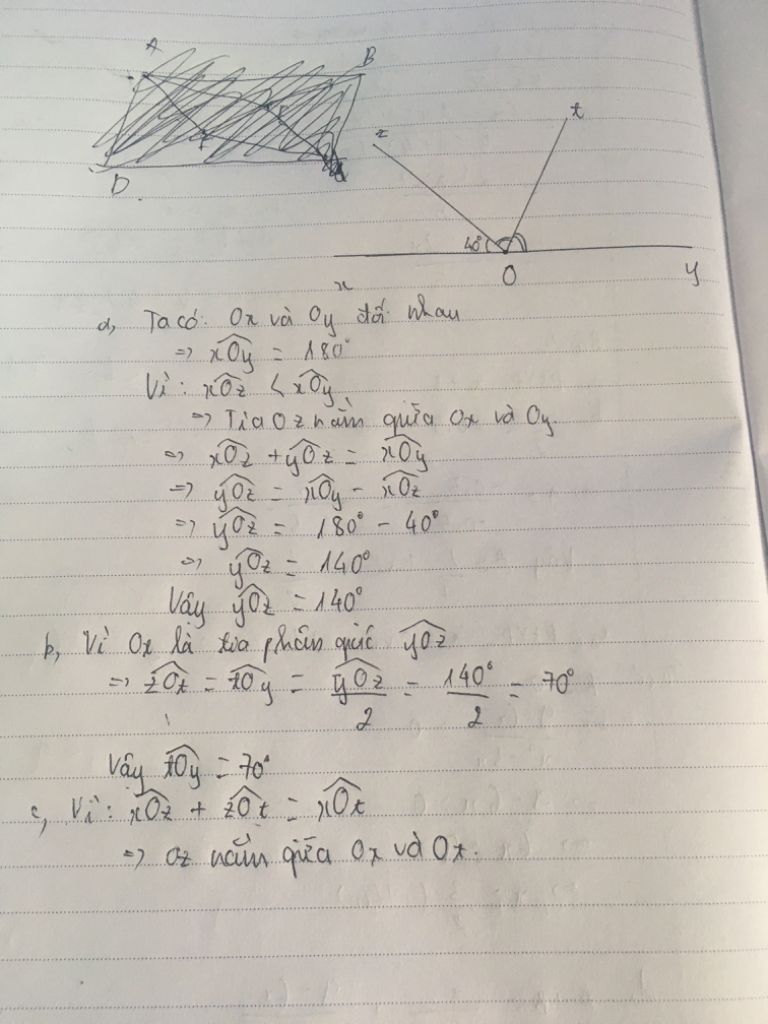 A
B
D
z
t
40°
x
O
y
a, Ta có: Ox và Oy đối nhau
=> xÔy = 180°
Vì: xÔz < xÔy
=> Tia Oz nằm giữa Ox và Oy.
=> xÔz + yÔz = xÔy
=> yÔz = xÔy - xÔz
=> yÔz = 180° - 40°
=> yÔz = 140°
Vậy yÔz = 140°
b, Vì Ox là tia phân giác yÔz
=> zÔt = tÔy = yÔz/2 = 140°/2 = 70°
Vậy tÔy = 70°
c, Vì: xÔz + zÔt = xÔt
=> Oz nằm giữa Ox và Ot.